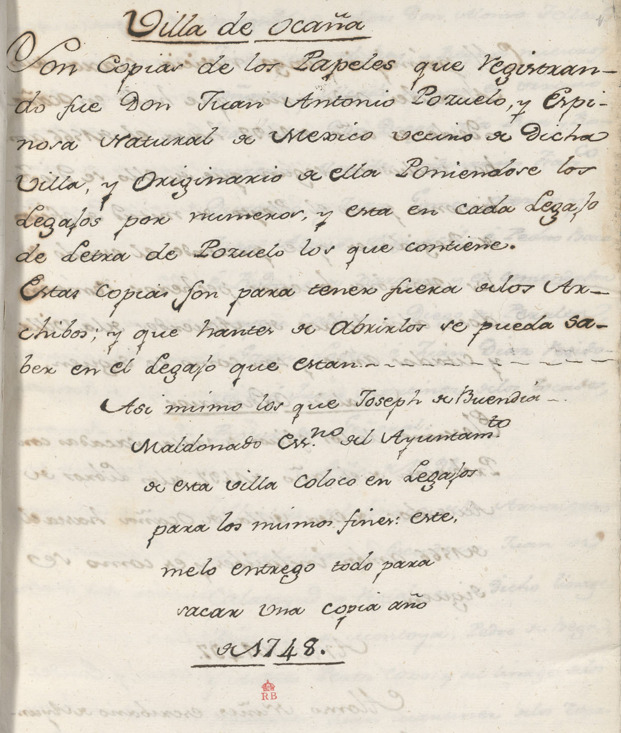 Villa de ocaña
Son Copias de los Papeles que registran-
do fue Don Juan Antonio Pozuelo, y Espi-
nosa Natural de Mexico vecino de Dicha
Villa, y Originario de ella Poniendose los
Legajos por numeros, y esta en cada Legajo
de Letra de Pozuelo los que contiene.
Estas Copias son para tener fuera de los Ar-
chibos; y que hantes de Abrirlos se pueda sa-
ber en el Legajo que estan
Asi mimo los que Joseph de Buendia
Maldonado Ess.no del Ayuntam.to
de esta villa Coloco en Legajos
para los mimos fines: este,
melo entrego todo para
sacar una copia año
de 1748.
RB